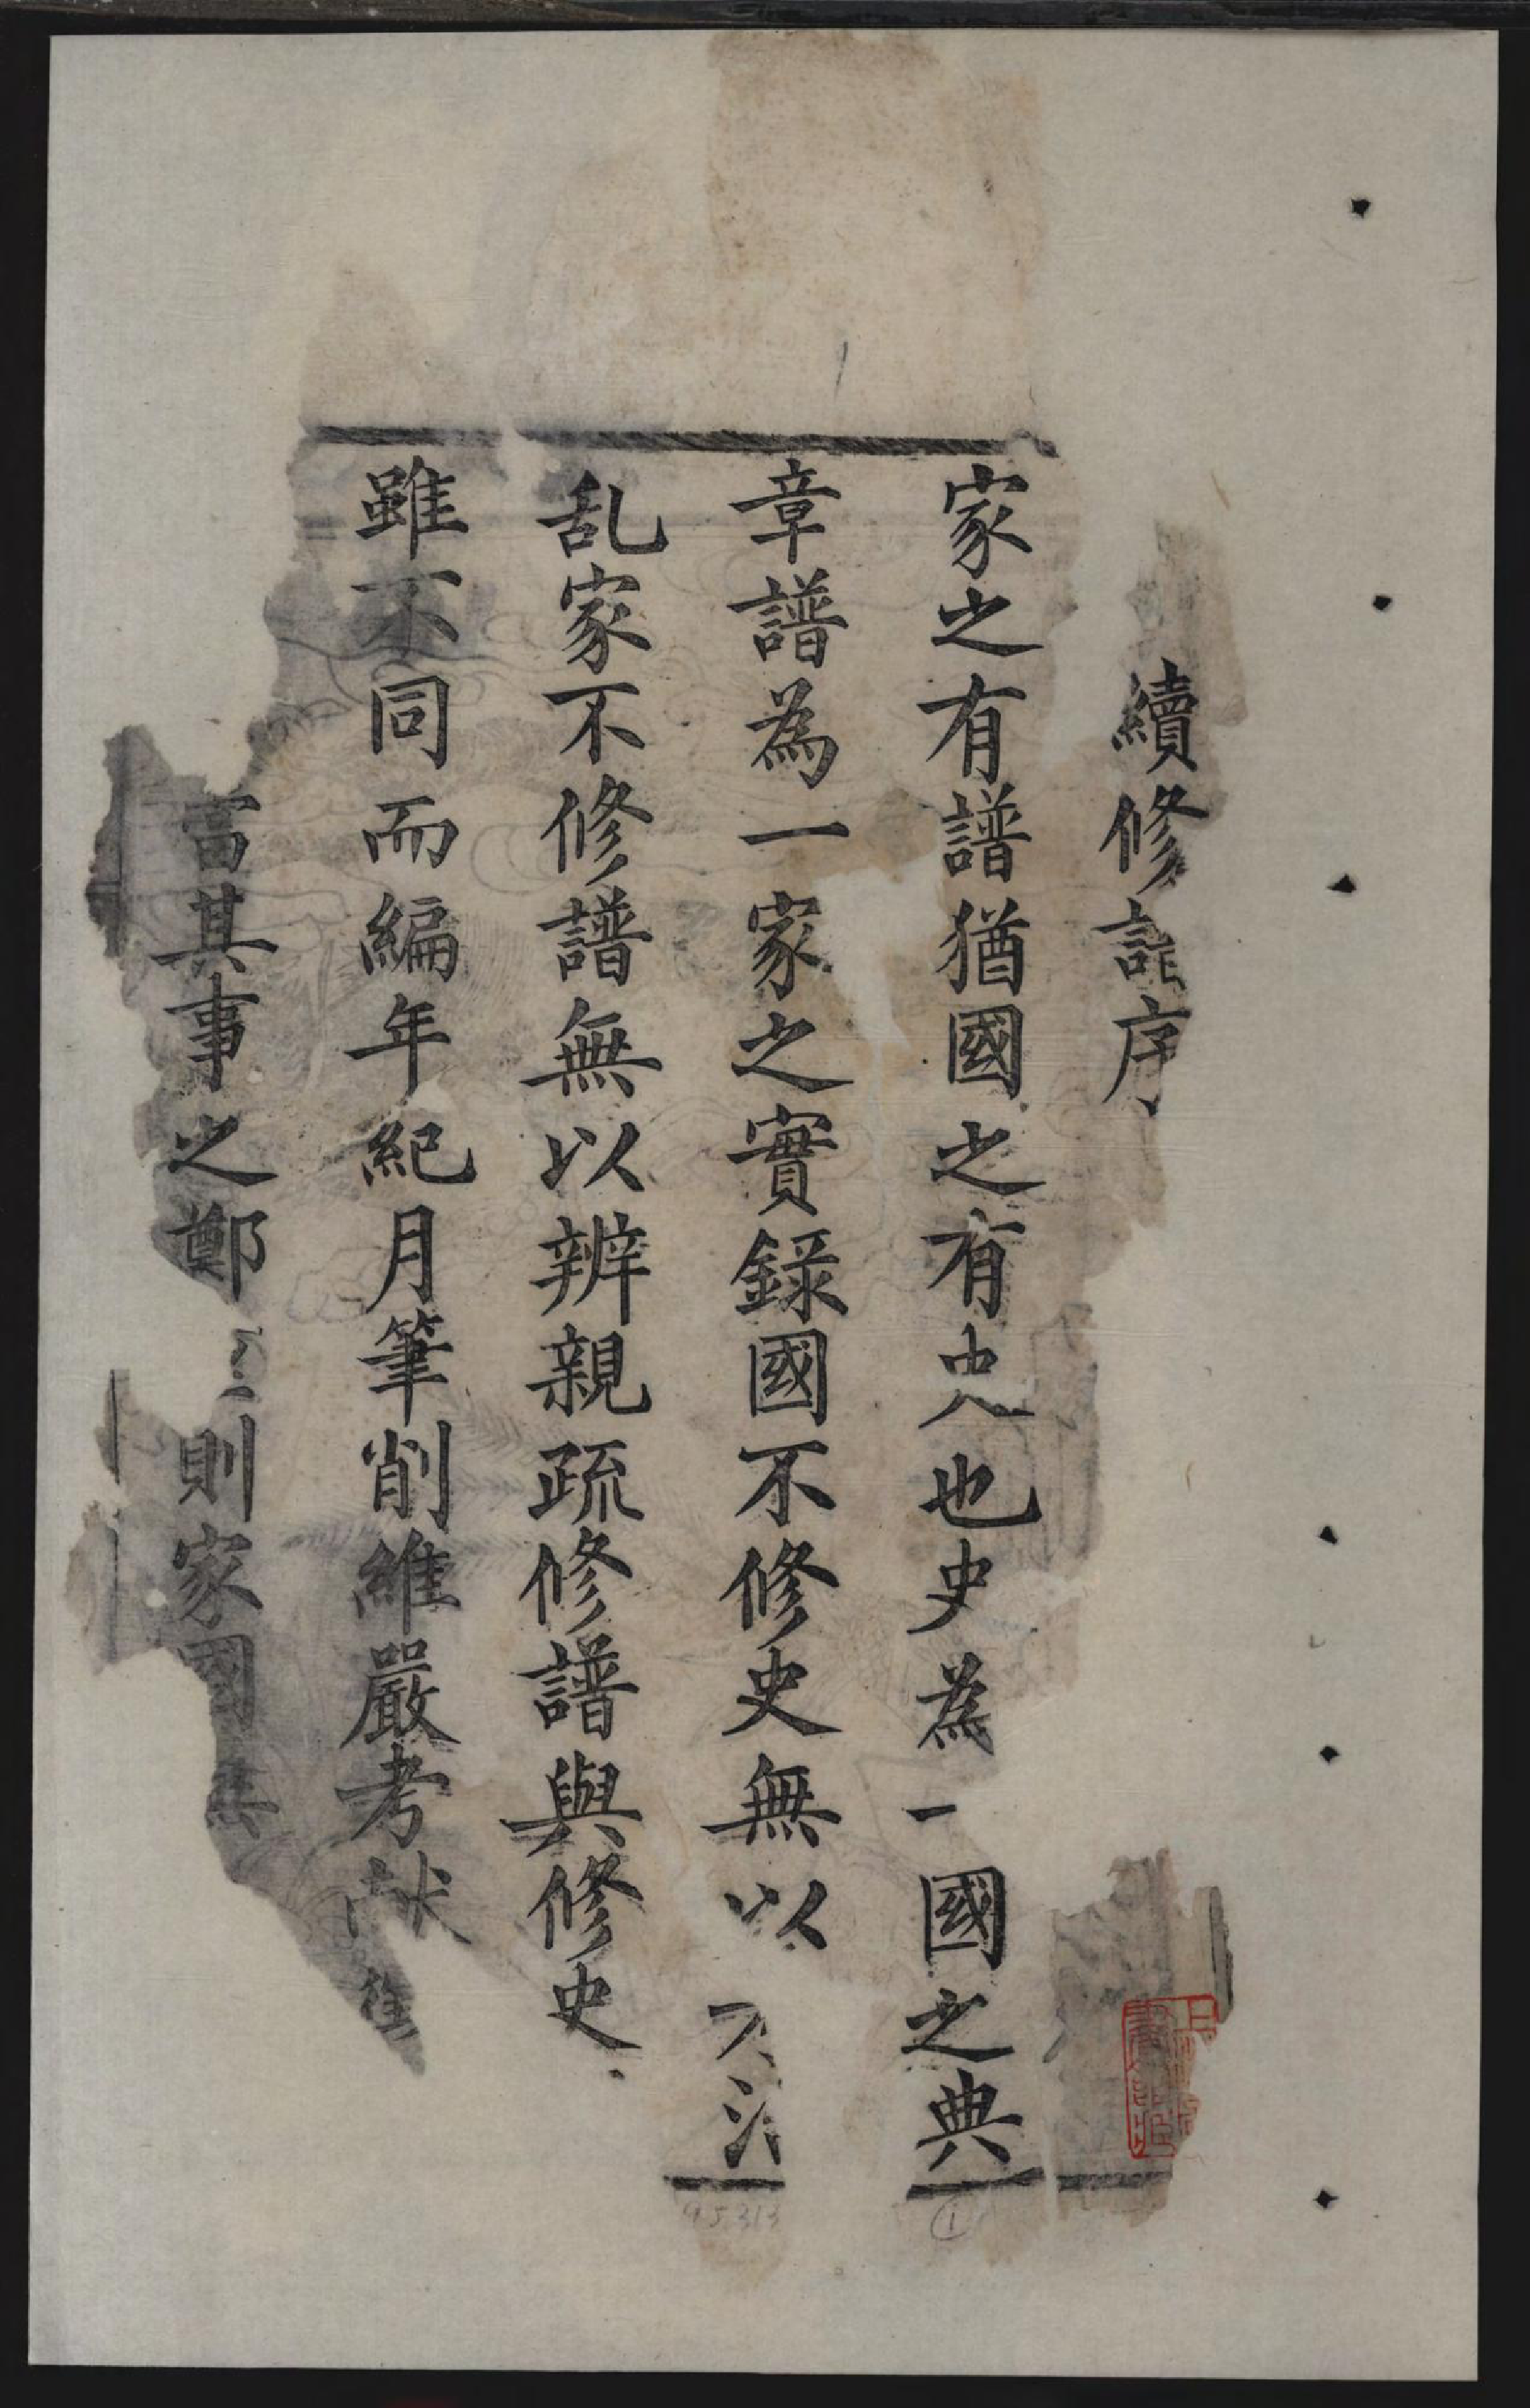 續修譜序
家之有譜猶國之有史也史為一國之典
章譜為一家之實錄國不修史無以
乱家不修譜無以辨親疏修譜與修史
雖不同而編年紀月筆削維嚴考献
富其事之鄭則家國
95313
1